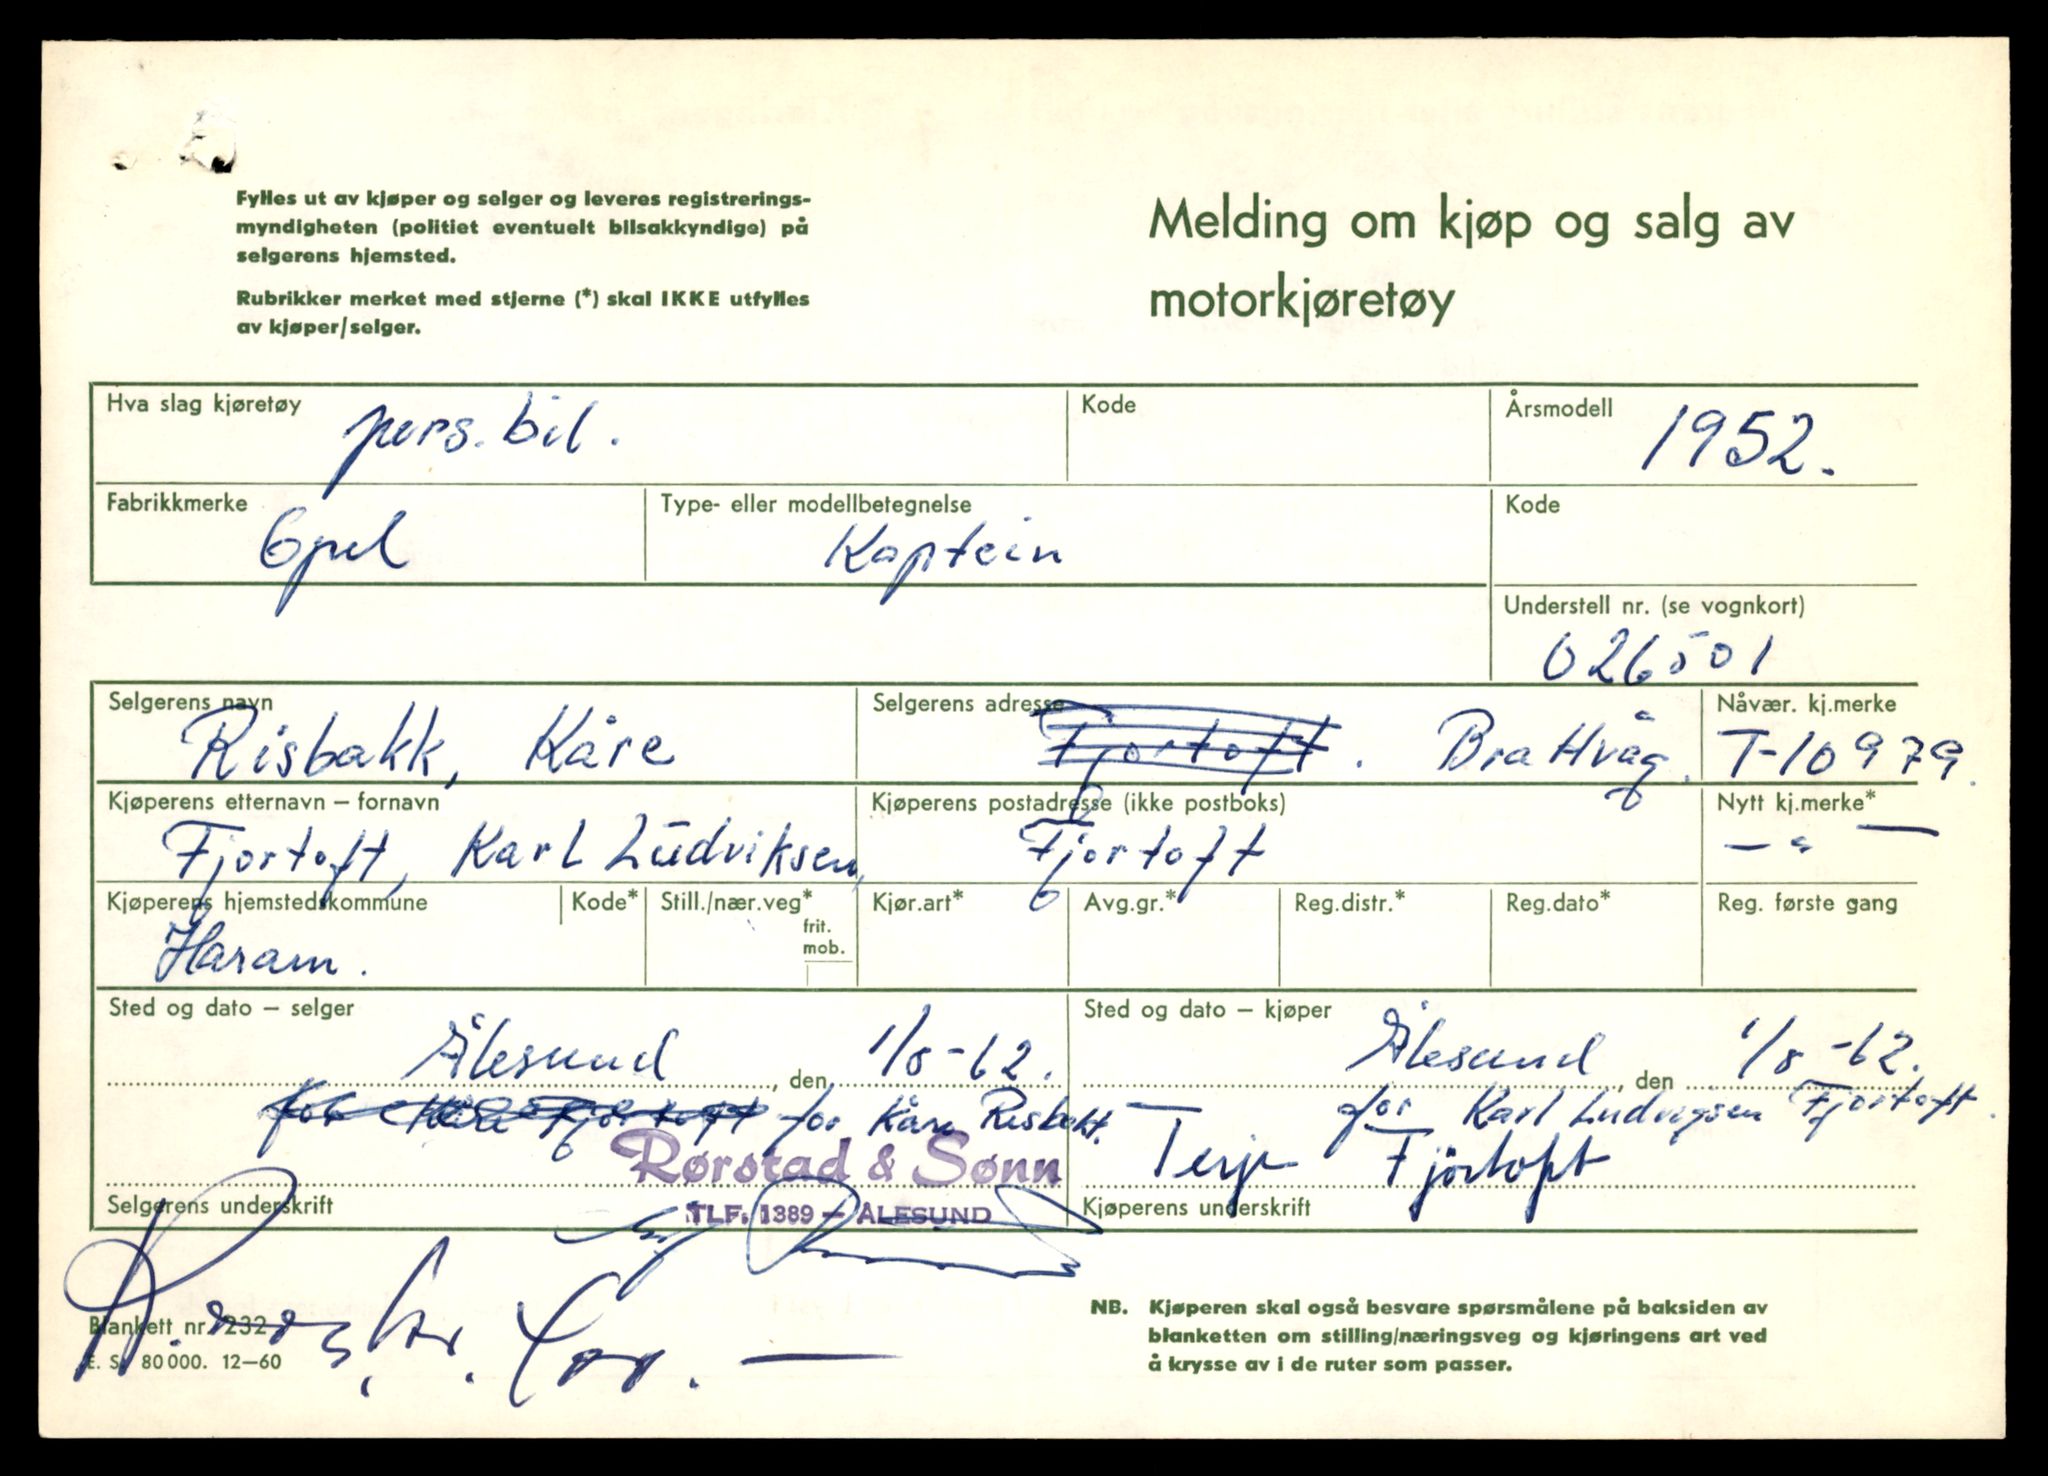 Fylles ut av kjøper og selger og leveres registrerings-
myndigheten (politiet eventuelt bilsakkyndige) på
selgerens hjemsted.
Rubrikker merket med stjerne (*) skal IKKE utfylles
av kjøper/selger.
Melding om kjøp og salg av
motorkjøretøy
Hva slag kjøretøy
pers.bil.
Kode
Årsmodell
1952.
Fabrikkmerke
Opel
Type- eller modellbetegnelse
Kaptein
Kode
Understell nr. (se vognkort)
026501
Selgerens navn
Risbakk, Kåre
Selgerens adresse
Fjortoft. Brattvåg.
Nåvær. kj.merke
T-10979.
Kjøperens etternavn – fornavn
Fjortoft, Karl Ludviksen,
Kjøperens postadresse (ikke postboks)
Fjortoft
Nytt kj.merke*
— " —
Kjøperens hjemstedskommune
Haram.
Kode*
Still./nær.veg*
frit.
mob.
Kjør.art*
Avg.gr.*
Reg.distr.*
Reg.dato*
Reg. første gang
Sted og dato – selger
Ålesund, den 1/8-62.
for Kåre Fjortoft for Kåre Risbakk.
Rørstad & Sønn
TLF. 1389 — ÅLESUND
Selgerens underskrift
Sted og dato – kjøper
Ålesund, den 1/8-62.
for Karl Ludvigsen Fjortoft.
Terje Fjörtoft
Kjøperens underskrift
Blankett nr. 232
E. S. 80 000. 12–60
NB. Kjøperen skal også besvare spørsmålene på baksiden av
blanketten om stilling/næringsveg og kjøringens art ved
å krysse av i de ruter som passer.